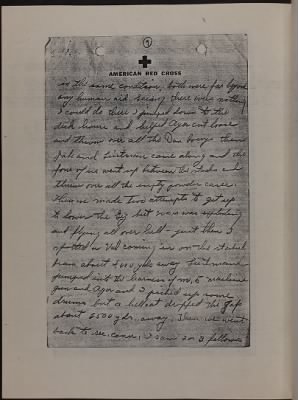 AMERICAN RED CROSS
in the same condition, both were far beyond
any human aid. Seeing there was nothing
I could do there I jumped down to the
deck house and helped Agar cut loose
and throw over all the Dan buoys then
and came along and the
four of us went up between the and
threw over all the empty powder cases.
Then we made two attempts to get up
to but was exploding
and flying all over hell - just then I
spotted a Val coming in on the starboard
beam about 4000 yds away
jumped into the harness of no. 5 machine
gun and Agar and I picked up some
drums but a hellcat dropped the Jap
about 2500 yds. away. Then we went
back to see I saw 2 or 3 fellows